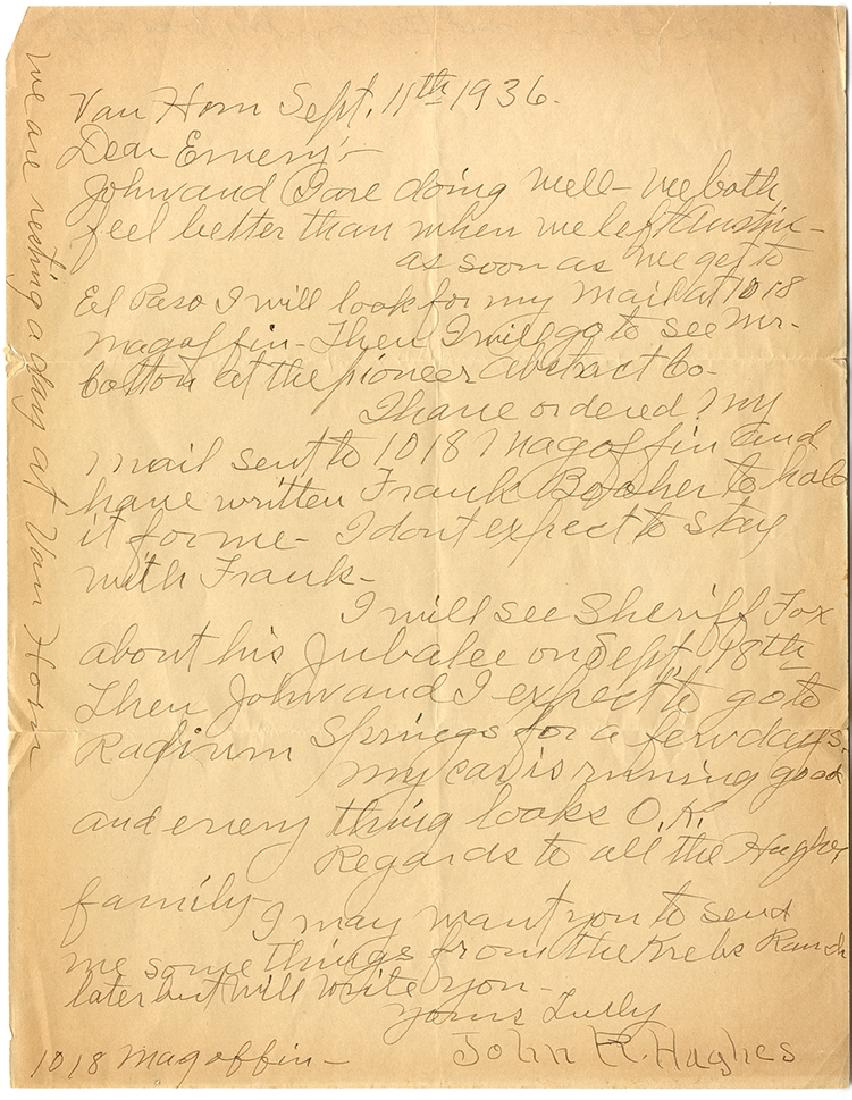 Van Horn Sept. 11th 1936.
Dear Emery:-
John and I are doing well- we both
feel better than when we left Austin-
as soon as we get to
El Paso I will look for my mail at 1018
Magoffin- Then I will go to see Mr.
Colton at the pioneer Abstract Co-
I have ordered my
mail sent to 1018 Magoffin and
have written Frank to hold
it for me- I dont expect to stay
with Frank-
I will see Sheriff Fox
about his Jubalee on Sept. 18th
Then John and I expect to go to
Radium Springs for a few days.
My car is running good
and every thing looks O.K.
Regards to all the Hughes
family-
I may want you to send
me some things from the Krebs Ranch
later but will write you-
Yours Tully
John R. Hughes
1018 Magoffin-
we are resting a day at Van Horn